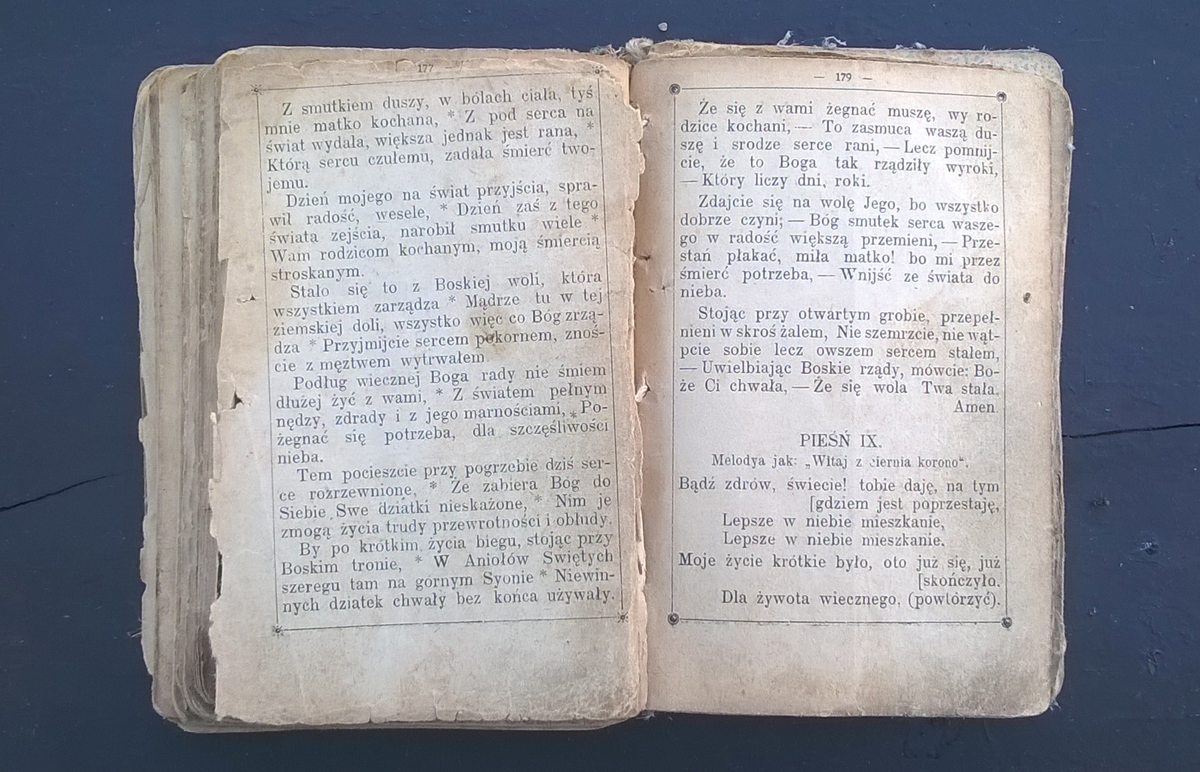 177
Z smutkiem duszy, w bólach ciała, tyś
mnie matko kochana, * Z pod serca na
świat wydała, większa jednak jest rana, *
Którą sercu czułemu, zadała śmierć two-
jemu.
Dzień mojego na świat przyjścia, spra-
wił radość, wesele, * Dzień zaś z tego
świata zejścia, narobił smutku wiele *
Wam rodzicom kochanym, moją śmiercią
stroskanym.
Stało się to z Boskiej woli, która
wszystkiem zarządza * Mądrze tu w tej
ziemskiej doli, wszystko więc co Bóg zrzą-
dza * Przyjmijcie sercem pokornem, znoś-
cie z męztwem wytrwałem
Podług wiecznej Boga rady nie śmiem
dłużej żyć z wami, * Z światem pełnym
nędzy, zdrady i z jego marnościami, * Po-
żegnać się potrzeba, dla szczęśliwości
nieba.
Tem pocieszcie przy pogrzebie dziś ser-
ce rozrzewnione, * Że zabiera Bóg do
Siebie Swe dziatki nieskażone, * Nim je
zmogą życia trudy przewrotności i obłudy.
By po krótkim życia biegu, stojąc przy
Boskim tronie, * W Aniołów Swiętych
szeregu tam na górnym Syonie * Niewin-
nych dziatek chwały bez końca używały.
— 179 —
Że się z wami żegnać muszę, wy ro-
dzice kochani, — To zasmuca waszą du-
szę i srodze serce rani, — Lecz pomnij-
cie, że to Boga tak rządziły wyroki,
— Który liczy dni, roki.
Zdajcie się na wolę Jego, bo wszystko
dobrze czyni; — Bóg smutek serca wasze-
go w radość większą przemieni, — Prze-
stań płakać, miła matko! bo mi przez
śmierć potrzeba, — Wnijść ze świata do
nieba.
Stojąc przy otwartym grobie, przepeł-
nieni w skroś żalem, Nie szemrzcie, nie wąt-
pcie sobie lecz owszem sercem stałem,
— Uwielbiając Boskie rządy, mówcie: Bo-
że Ci chwała, — Że się wola Twa stała.
Amen.
PIEŚŃ IX.
Melodya jak: „Witaj z ciernia korono".
Bądź zdrów, świecie! tobie daję, na tym
[gdziem jest poprzestaję,
Lepsze w niebie mieszkanie,
Lepsze w niebie mieszkanie.
Moje życie krótkie było, oto już się, już
[skończyło.
Dla żywota wiecznego, (powtórzyć).